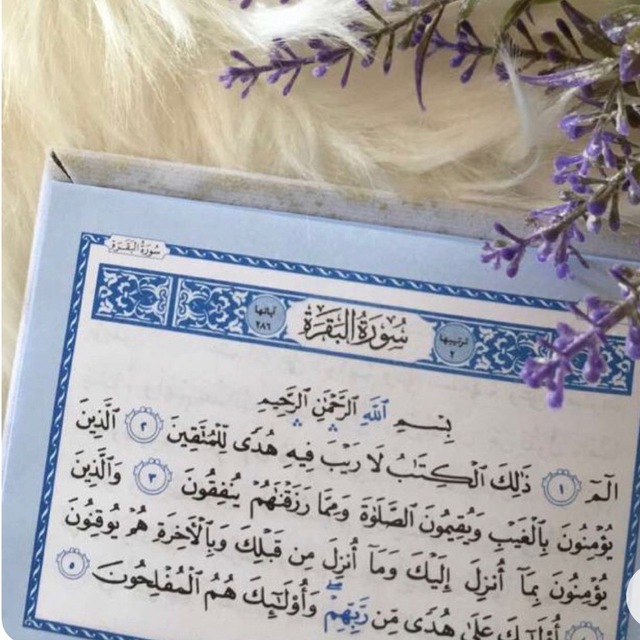 سُورَةُ البَقَرَةِ
ترتيبها ٢ سُورَةُ البَقَرَةِ آياتها ٢٨٦
بِسْمِ ٱللَّهِ ٱلرَّحْمَٰنِ ٱلرَّحِيمِ
الٓمٓ ١ ذَٰلِكَ ٱلْكِتَٰبُ لَا رَيْبَ فِيهِ هُدًى لِّلْمُتَّقِينَ ٢ ٱلَّذِينَ
يُؤْمِنُونَ بِٱلْغَيْبِ وَيُقِيمُونَ ٱلصَّلَوٰةَ وَمِمَّا رَزَقْنَٰهُمْ يُنفِقُونَ ٣ وَٱلَّذِينَ
يُؤْمِنُونَ بِمَآ أُنزِلَ إِلَيْكَ وَمَآ أُنزِلَ مِن قَبْلِكَ وَبِٱلْءَاخِرَةِ هُمْ يُوقِنُونَ
أُو۟لَٰٓئِكَ عَلَىٰ هُدًى مِّن رَّبِّهِمْ ۖ وَأُو۟لَٰٓئِكَ هُمُ ٱلْمُفْلِحُونَ ٥